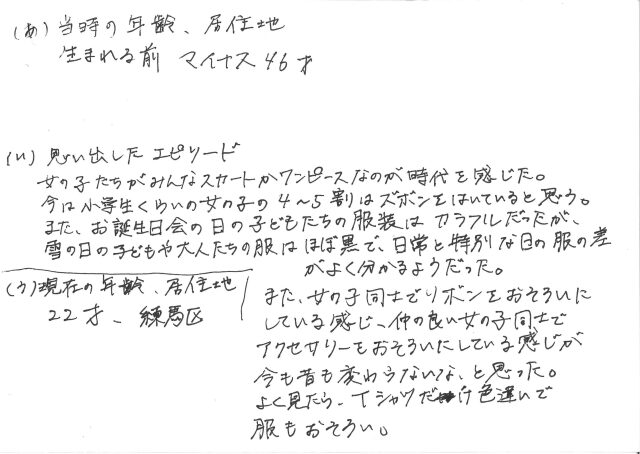 (あ) 当時の年齢、居住地
生まれる前 マイナス46才
(い) 思い出したエピソード
女の子たちがみんなスカートかワンピースなのが時代を感じた。
今は小学生くらいの女の子の4〜5割はズボンをはいていると思う。
また、お誕生日会の日の子どもたちの服装はカラフルだったが、
雪の日の子どもや大人たちの服はほぼ黒で、日常と特別な日の服の差
がよく分かるようだった。
(う) 現在の年齢、居住地
22才、練馬区
また、女の子同士でリボンをおそろいに
している感じ、仲の良い女の子同士で
アクセサリーをおそろいにしている感じが
今も昔も変わらないな、と思った。
よく見たら、Tシャツだけ色違いで
服もおそろい。